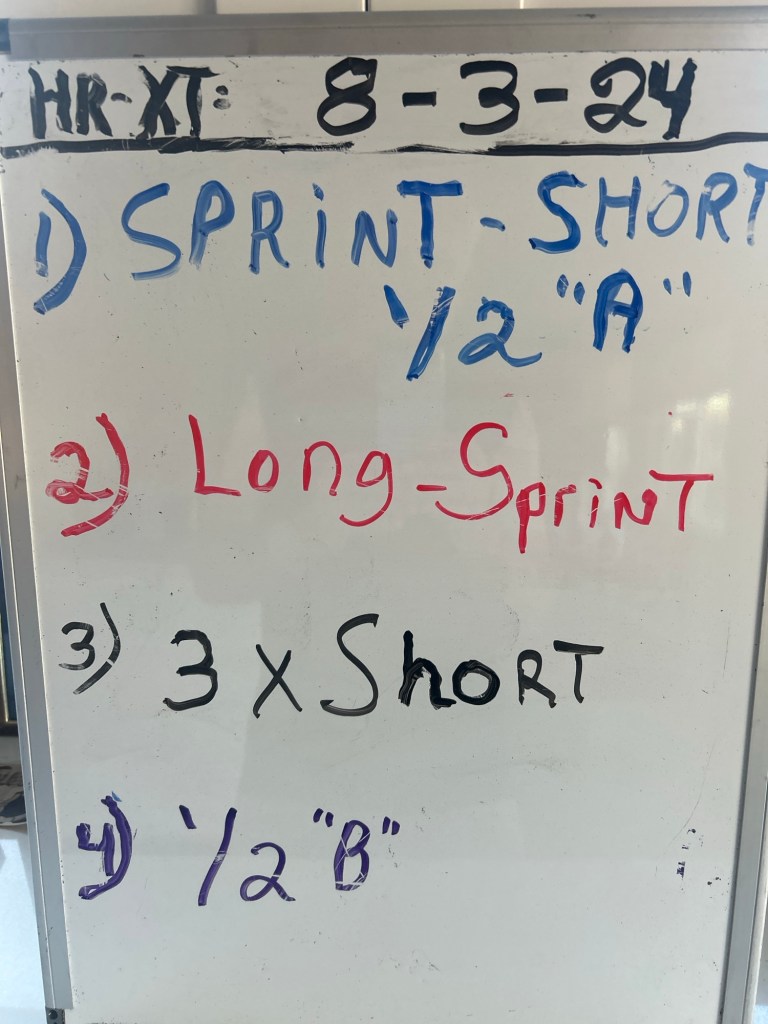 HR-XT: 8-3-24
1) SPRiNT - SHORT
1/2 "A"
2) Long-SpriNT
3) 3 x ShoRT
4) 1/2 "B"